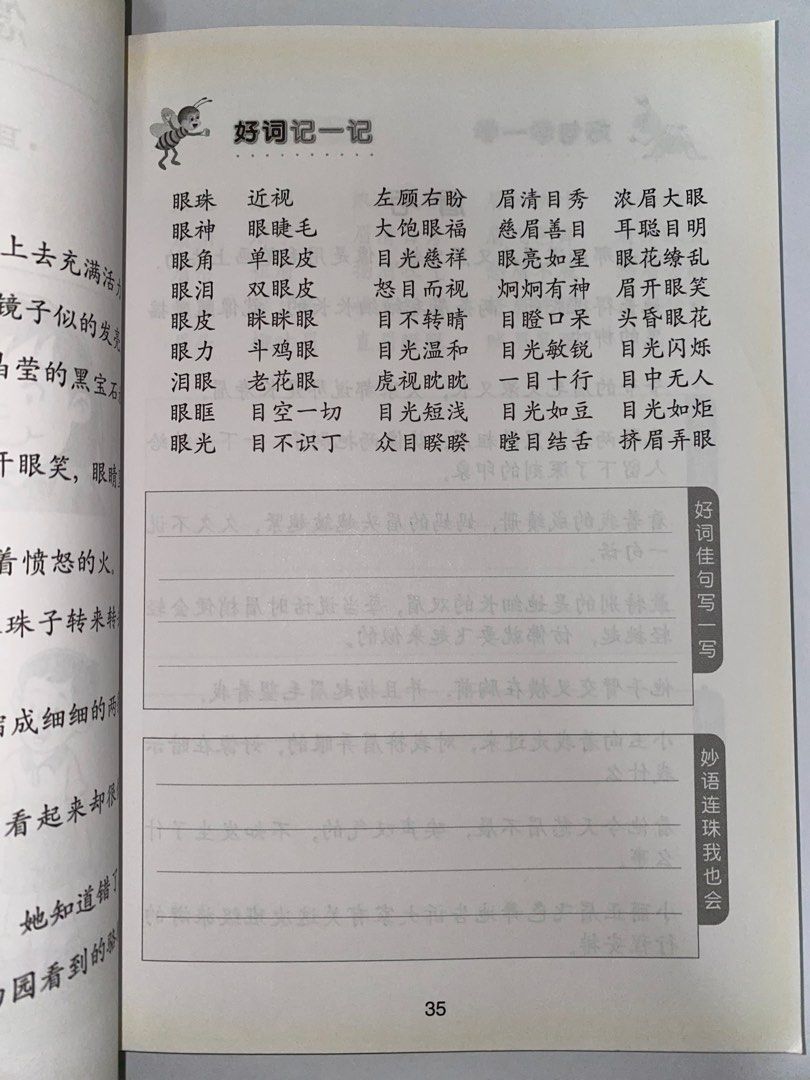 上去充满活
镜子似的发亮
晶莹的黑宝石
开眼笑，眼睛
着愤怒的火。
珠子转来转
成细细的两
看起来却很
她知道错了
园看到的
好词记一记
眼珠 近视 左顾右盼 眉清目秀 浓眉大眼
眼神 眼睫毛 大饱眼福 慈眉善目 耳聪目明
眼角 单眼皮 目光慈祥 眼亮如星 眼花缭乱
眼泪 双眼皮 怒目而视 炯炯有神 眉开眼笑
眼皮 眯眯眼 目不转睛 目瞪口呆 头昏眼花
眼力 斗鸡眼 目光温和 目光敏锐 目光闪烁
泪眼 老花眼 虎视眈眈 一目十行 目中无人
眼眶 目空一切 目光短浅 目光如豆 目光如炬
眼光 目不识丁 众目睽睽 瞠目结舌 挤眉弄眼
好词佳句写一写
妙语连珠我也会
35